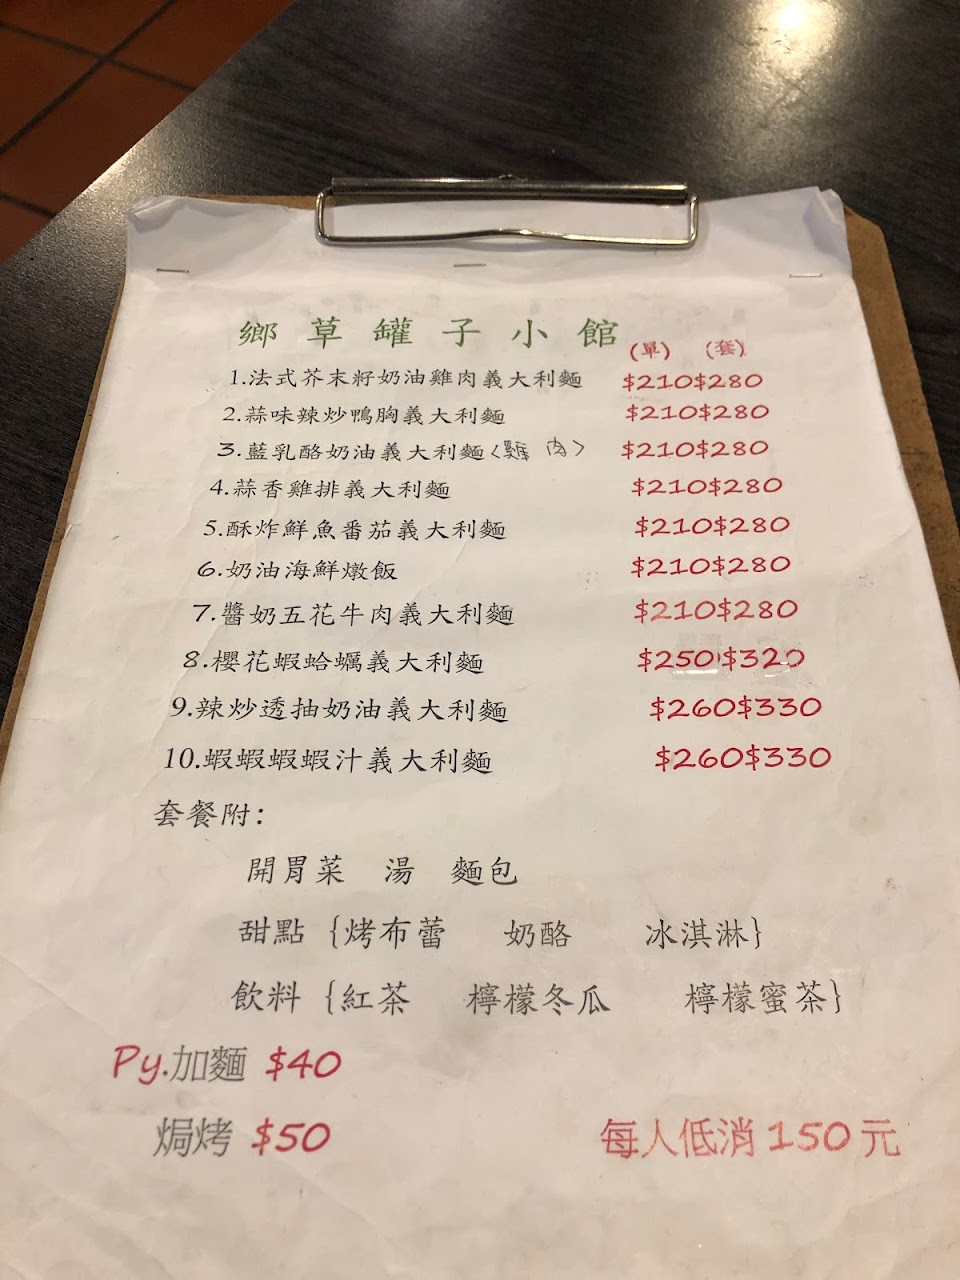 鄉草罐子小館 (單) (套)
1.法式芥末籽奶油雞肉義大利麵 $210$280
2.蒜味辣炒鴨胸義大利麵 $210$280
3.藍乳酪奶油義大利麵<雞肉> $210$280
4.蒜香雞排義大利麵 $210$280
5.酥炸鮮魚番茄義大利麵 $210$280
6.奶油海鮮燉飯 $210$280
7.醬奶五花牛肉義大利麵 $210$280
8.櫻花蝦蛤蠣義大利麵 $250$320
9.辣炒透抽奶油義大利麵 $260$330
10.蝦蝦蝦蝦汁義大利麵 $260$330
套餐附:
開胃菜 湯 麵包
甜點 {烤布蕾 奶酪 冰淇淋}
飲料 {紅茶 檸檬冬瓜 檸檬蜜茶}
Py.加麵 $40
焗烤 $50 每人低消 150 元